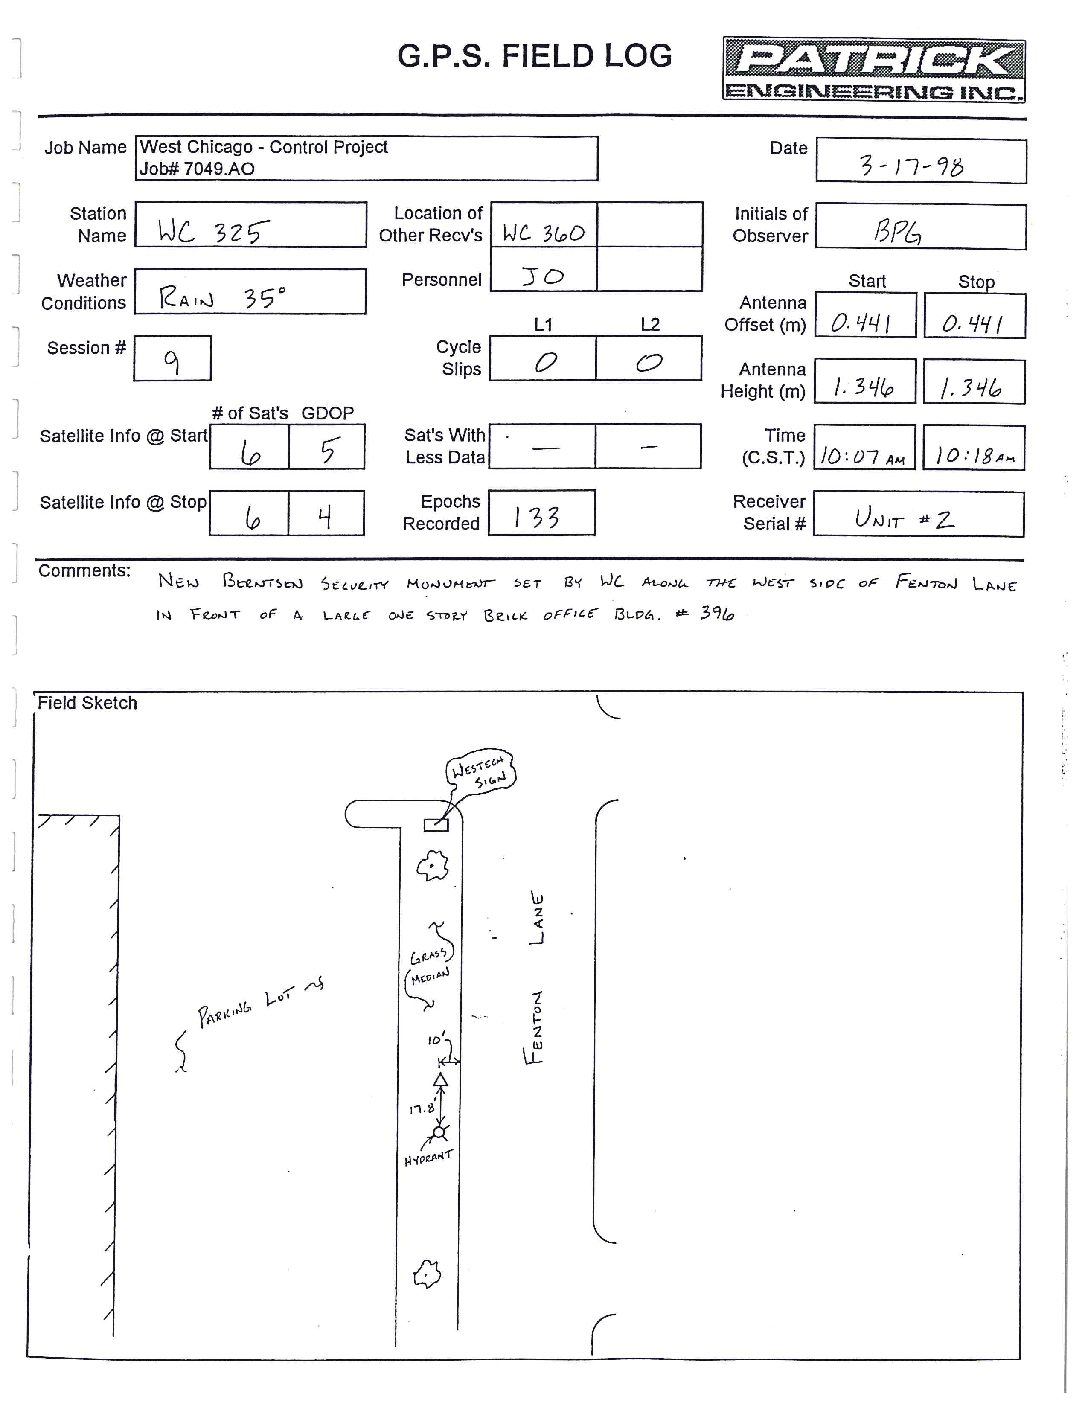 G.P.S. FIELD LOG
PATRICK
ENGINEERING INC.
Job Name West Chicago - Control Project
Job# 7049.AO
Date 3-17-98
Station Name WC 325
Location of Other Recv's WC 360
Initials of Observer BPG
Weather Conditions RAIN 35°
Personnel JO
Start Stop
Antenna Offset (m) 0.441 0.441
Session # 9
L1 L2
Cycle Slips 0 0
Antenna Height (m) 1.346 1.346
# of Sat's GDOP
Satellite Info @ Start 6 5
Sat's With Less Data — –
Time (C.S.T.) 10:07 AM 10:18 AM
Satellite Info @ Stop 6 4
Epochs Recorded 133
Receiver Serial # UNIT #2
Comments: NEW BERNTSEN SECURITY MONUMENT SET BY WC ALONG THE WEST SIDE OF FENTON LANE
IN FRONT OF A LARGE ONE STORY BRICK OFFICE BLDG. # 396
Field Sketch
WESTECH
SIGN
GRASS
MEDIAN
FENTON LANE
PARKING LOT
10'
17.8'
HYDRANT